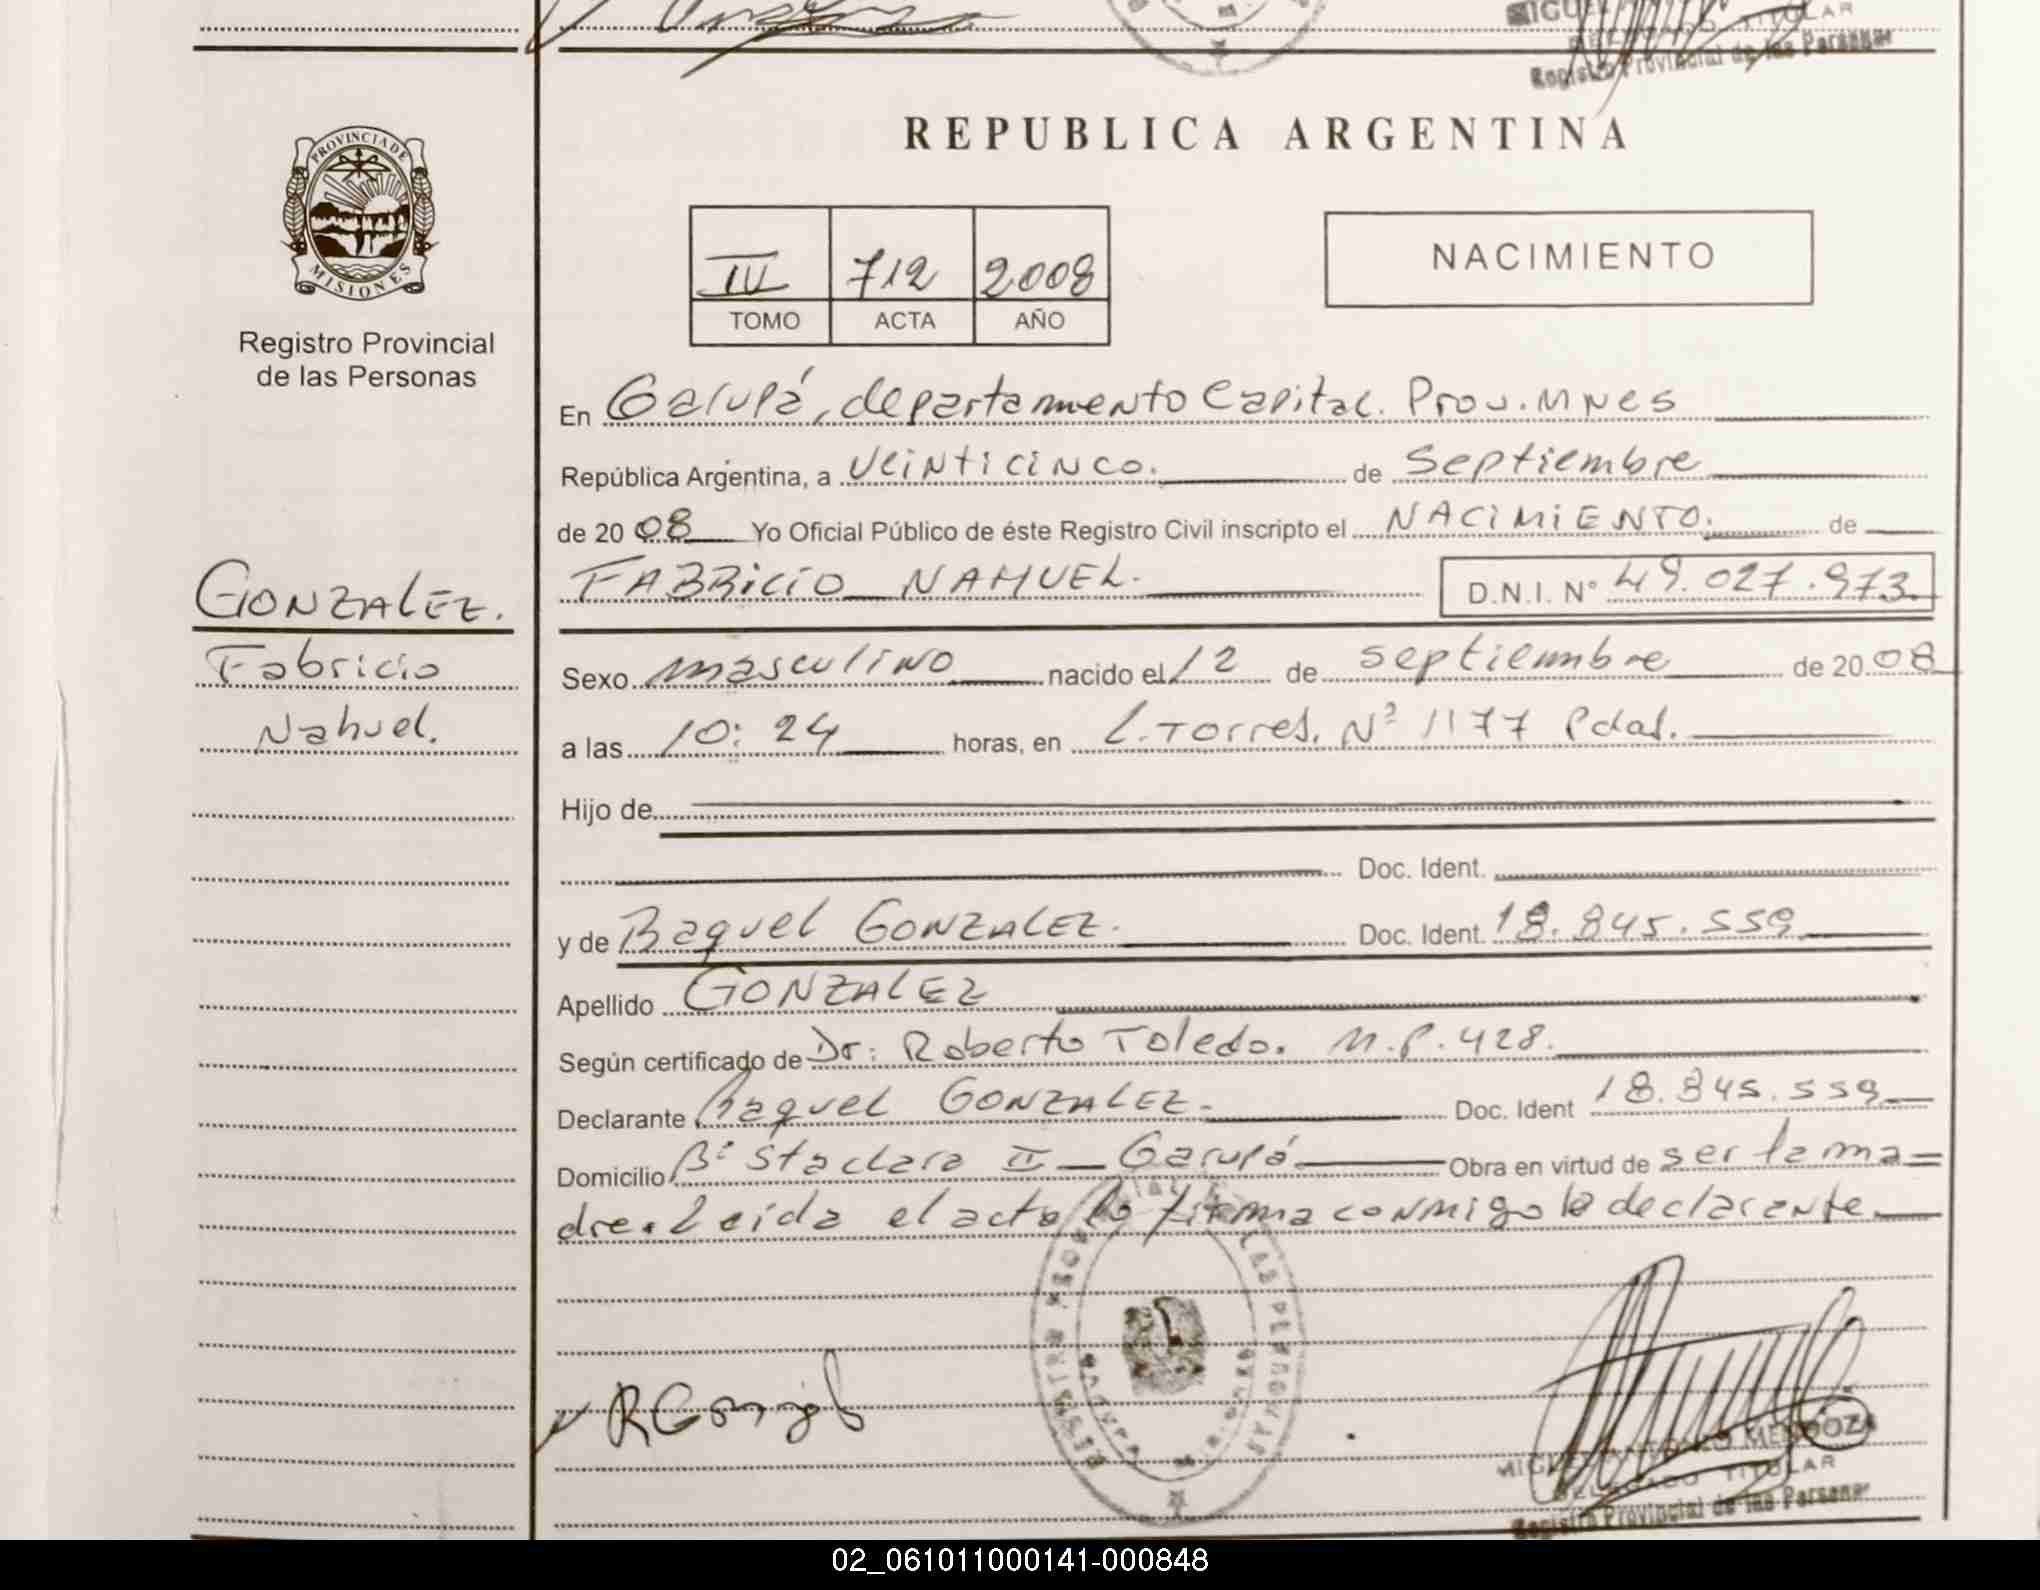 MIGUEL
DELEGADO TITULAR
Registro Provincial de las Personas
PROVINCIA DE
MISIONES
Registro Provincial
de las Personas
REPUBLICA ARGENTINA
IV 712 2008
TOMO ACTA AÑO
NACIMIENTO
En Garupá, departamento Capital. Prov. MNes
República Argentina, a Veinticinco. de Septiembre
de 20 08 Yo Oficial Público de éste Registro Civil inscripto el NACIMIENTO. de
GONZALEZ.
FABRICIO NAHUEL. D.N.I. N° 49.027.973.
Fabricio
Sexo masculino nacido el 12 de septiembre de 20 08
Nahuel.
a las 10:24 horas, en L. Torres. Nº 1177 Pdas.
Hijo de
Doc. Ident.
y de Raquel GONZALEZ. Doc. Ident. 18.845.559
Apellido GONZALEZ
Según certificado de Dr: Roberto Toledo. M.P. 428.
Declarante Raquel GONZALEZ. Doc. Ident 18.845.559
Domicilio Bº Sta clara II - Garupá Obra en virtud de ser la ma=
dre. Leida el acta la firma conmigo la declarante.
RGonzalez
MIGUEL ANTONIO MENDOZA
DELEGADO TITULAR
Registro Provincial de las Personas
02_061011000141-000848